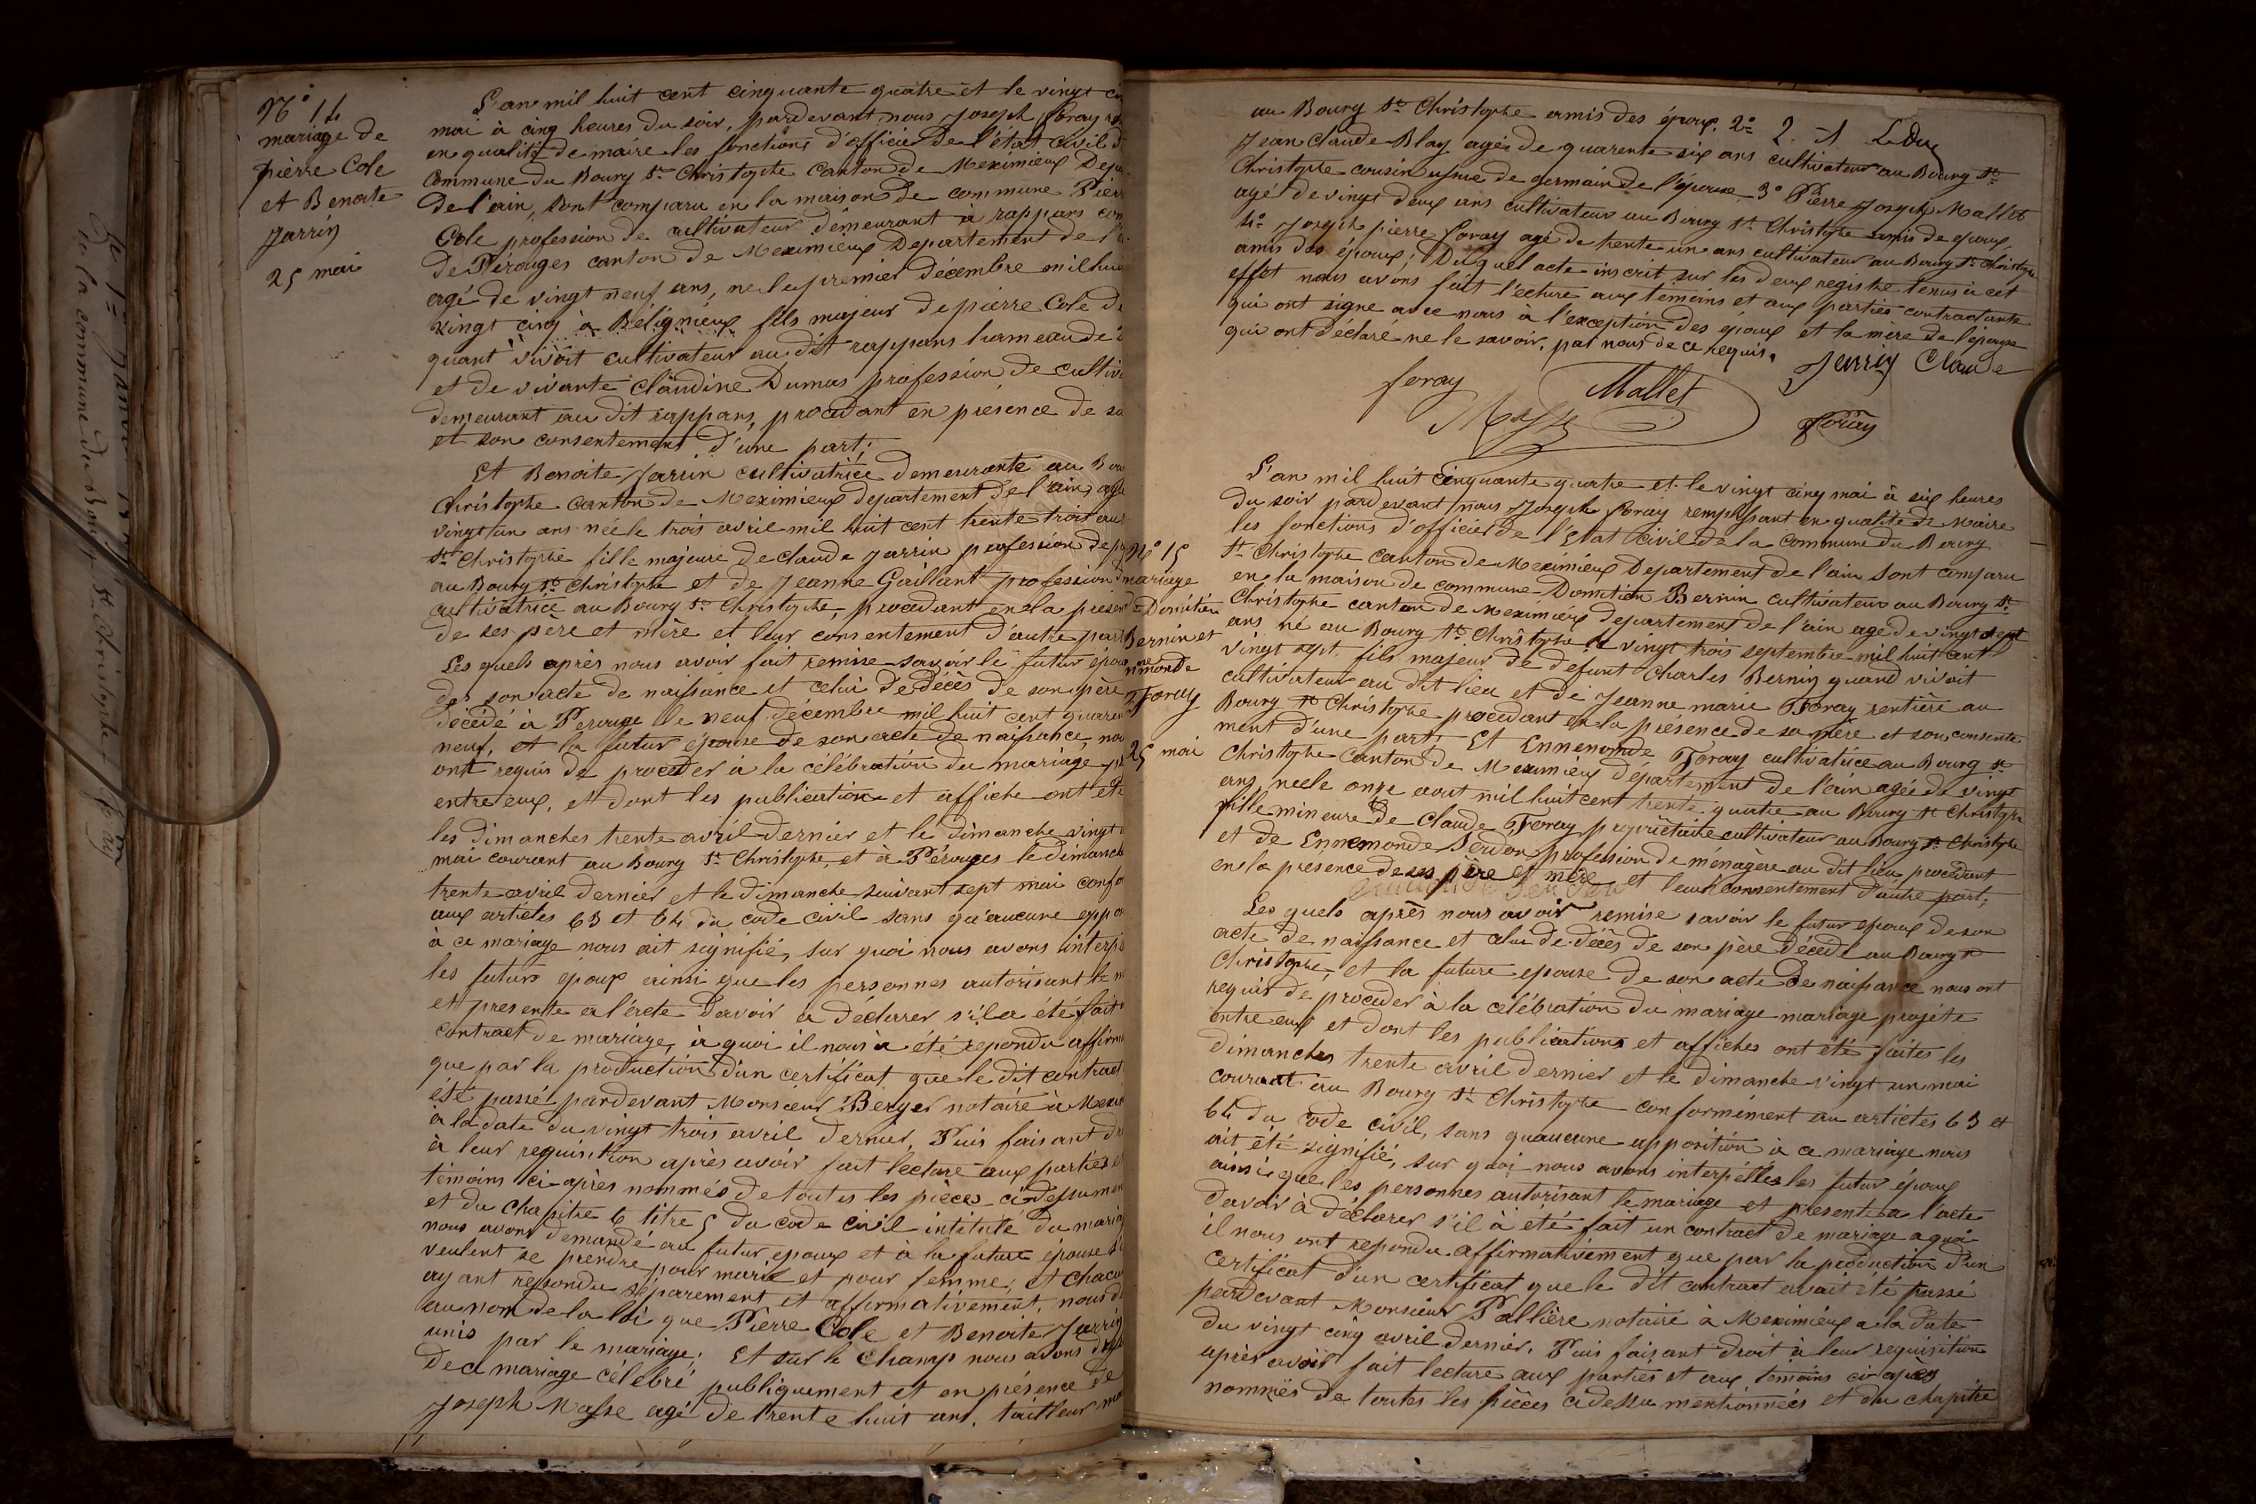 N° 14
mariage de
pierre Cole
et Benoite
Jarrin
25 mai
L'an mil huit cent cinquante quatre et le vingt
mai à cinq heures du soir, pardevant nous Joseph Foray
en qualité de maire les fonctions d'officier de l'état civil
Commune du Bourg St Christophe Canton de Meximieux
De l'ain, sont comparu en la maison de commune
Cole profession de cultivateur demeurant à rappans
de Pérouges canton de Meximieux Departement de
agé de vingt neuf ans, ne le premier décembre mil
vingt cinq à Beligneux fils majeur de pierre Cole
quant vivoit cultivateur au dit rappans hameau de
et de vivante Claudine Dumas profession de
demeurant au dit rappans, procedant en présence de
et son consentement d'une part;
Et Benoite Jarrin cultivatrice demeurante au
Christophe canton de Meximieux departement de l'ain,
vingt un ans née le trois avril mil huit cent trente trois au
St Christophe fille majeure de claude Jarrin profession de
au Bourg St Christophe et de Jeanne Gaillant profession
cultivatrice au Bourg St Christophe, procedant en la
de ses père et mère et leur consentement d'autre part
Les quels après nous avoir fait remise savoir le futur
de son acte de naissance et celui de décès de son père
décédé à Perouge le neuf décembre mil huit cent
neuf, et la futur épouse de son acte de naissance,
ont requis de proceder à la célébration du mariage
entre eux, et dont les publications et affiche ont été
les dimanches trente avril dernier et le dimanche vingt
mai courant au Bourg St Christophe, et à Pérouges le
trente avril dernier et le dimanche suivant sept mai
aux articles 63 et 64 du code civil sans qu'aucune
à ce mariage nous ait signifié, sur quoi nous avons
les futurs époux ainsi que les personnes autorisant le
et presente a l'acte d'avoir a déclarer s'il a été fait
contract de mariage, à quoi il nous a été repondu
que par la production d'un certificat que le dit contract
été passé pardevant Monsieur Berger notaire à
à la date du vingt trois avril dernier, Puis faisant
à leur requisition après avoir fait lecture aux parties
témoins ci-après nommés de toutes les pièces
et du chapitre 6 titre 5 du code civil intitulé du
nous avons demandé au futur epoux et à la future épouse
veulent se prendre pour mari et pour femme, et
ayant repondu séparement et affirmativement, nous
au nom de la loi que Pierre Cole et Benoite Jarrin
unis par le mariage. Et sur le champ nous avons
de ce mariage célébré publiquement et en présence de
Joseph Masse agé de trente huit ans, tailleur
au Bourg St Christophe amis des époux. 2°
Jean claude Blay agée de quarente six ans cultivateur au Bourg St
Christophe cousin de germain de l'épouse 3° Pierre Joseph Mallet
agé de vingt deux ans cultivateur au Bourg St Christophe amis de epoux
4° Joseph pierre Foray agé de trente un ans cultivateur au Bourg St Christophe
amis des époux; Duquel acte inscrit sur les deux registre tenus à cet
effet nous avons fait l'ecture aux temoins et aux parties contractante
qui ont signe avec nous à l'exception des époux et la mère de l'épouse
qui ont déclaré ne le savoir, par nous de ce requis.
Jarrin Claude
foray Mallet
Masse Foray
N° 15
mariage
de Domitien
Bernin et
Foray
25 mai
L'an mil huit cinquante quatre et le vingt cinq mai à six heures
du soir pardevant nous Joseph Foray remplissant en qualité de Maire
les fonctions d'officier de l'Etat civil de la commune du Bourg
St Christophe canton de Meximieux Departement de l'ain sont comparu
en la maison de commune Domitien Bernin cultivateur au Bourg St
Christophe canton de Meximieux departement de l'ain agé de vingt sept
ans né au Bourg St Christophe le vingt trois septembre mil huit cent
vingt sept fils majeur de defunt Charles Bernin quand vivoit
cultivateur au dit lieu et de Jeanne marie Foray rentière au
Bourg St Christophe procedant en la présence de sa mère et son consente
ment d'une part. Et Ennemonde Foray cultivatrice au Bourg St
Christophe Canton de Meximieux département de l'ain agée de vingt
ans neele onze aout mil huit cent trente quatre au Bourg St Christophe
fille mineure de Claude Foray propriétaire cultivateur au Bourg St Christophe
et de Ennemonde profession de ménagère au dit lieu procedant
en la presence de ses père et mère et leur consentement d'autre part;
Les quels après nous avoir remise savoir le futur epoux de son
acte de naissance et celui de décès de son père décedé au Bourg St
Christophe, et la future epouse de son acte de naissance nous ont
requis de proceder à la célébration du mariage mariage projeté
entre eux et dont les publications et affiches ont été faites les
dimanches trente avril dernier et le dimanche vingt un mai
courant au Bourg St Christophe conformément au articles 63 et
64 du code civil, sans quaucune opposition à ce mariage nous
ait été signifié, sur quoi nous avons interpéllesles futur époux
ainsi que les personnes autorisant le mariage et presente a l'acte
davoir à déclarer s'il à été fait un contract de mariage a quoi
il nous ont repondu affirmativement que par la production d'un
certificat d'un certificat que le dit contract avait été passé
pardevant Monsieur Pallière notaire à Meximieux a la date
du vingt cinq avril dernier. Puis faisant droit à leur requisition
après avoir fait lecture aux parties et aux temoins ci-après
nommés de toutes les pièces cidessu mentionnées et du chapitre